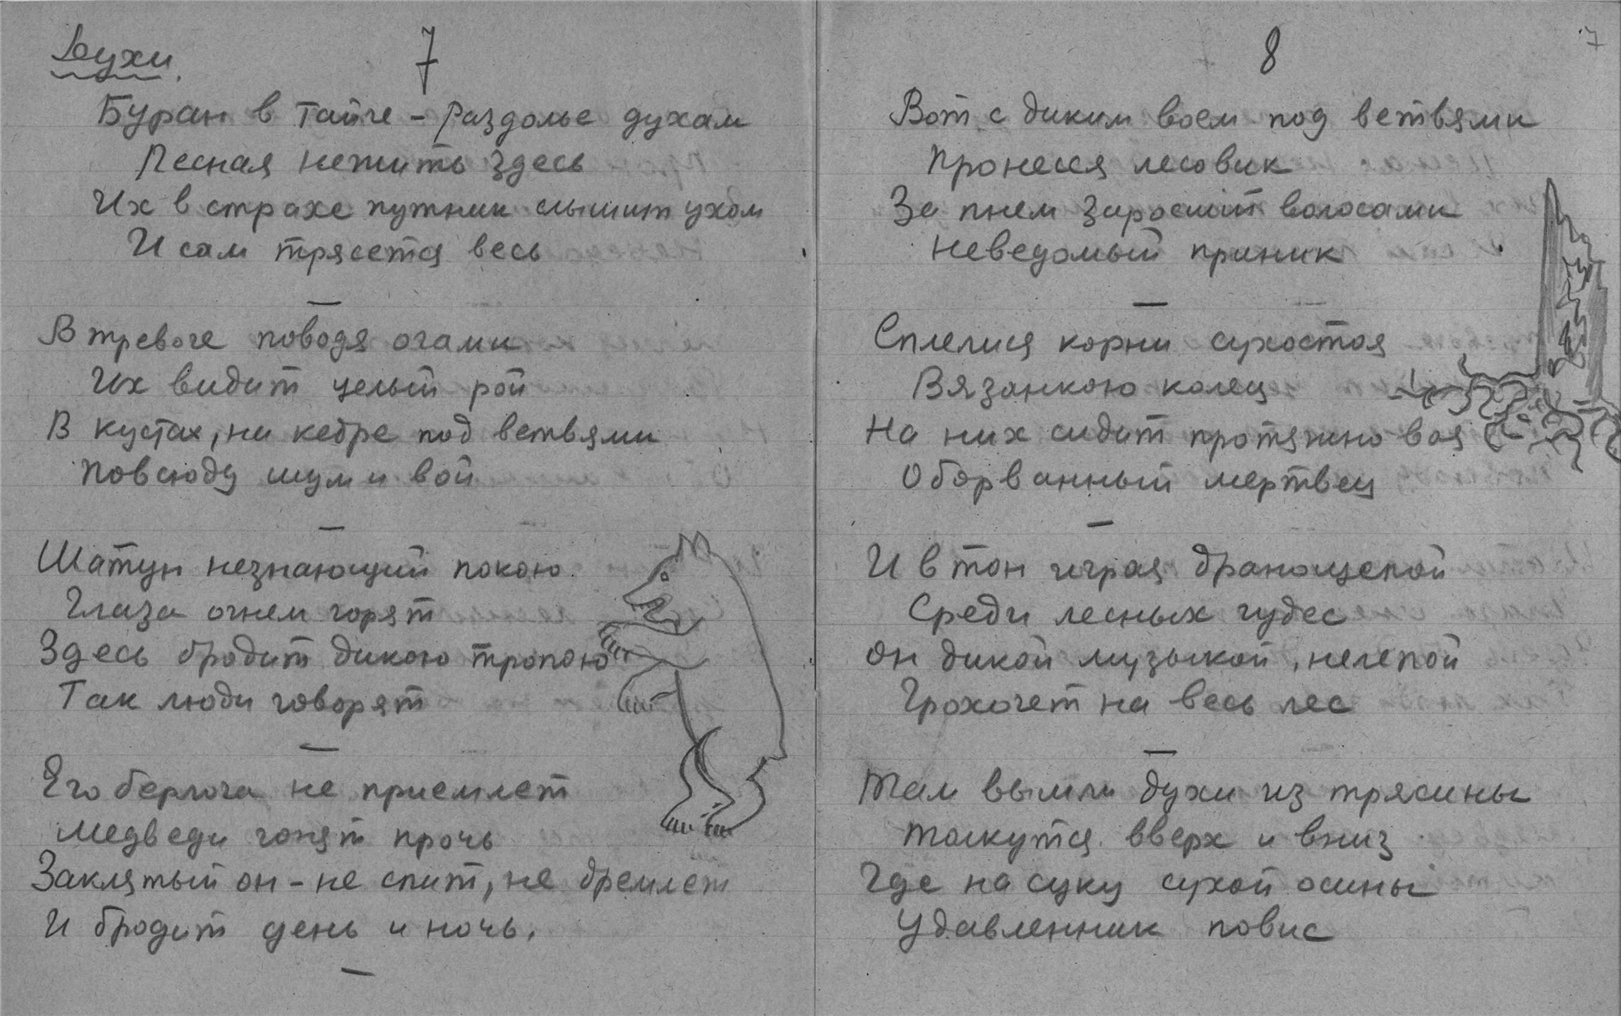 Духи.
7
Буран в тайге – раздолье духам
Лесная нежить здесь
Их в страхе путник слышит ухом
И сам трясется весь
В тревоге поводя очами
Их видит целый рой
В кустах, на кедре под ветвями
Повсюду шум и вой
Шатун незнающий покою.
Глаза огнем горят
Здесь бродит дикою тропою
Так люди говорят
Его берлога не приемлет
Медведи гонят прочь
Заклятый он – не спит, не дремлет
И бродит день и ночь.
8
7
Вот с диким воем под ветвями
Пронесся лесовик
За пнем заросший волосами
Неведомый приник
Сплелися корни сухостоя
Вязанкою колец
На них сидит протяжно воя
Оборванный мертвец
И в тон играя дранощепой
Среди лесных чудес
Он дикой музыкой, нелепой
Грохочет на весь лес
Там вышли духи из трясины
Толкутся вверх и вниз
Где на суку сухой осины
Удавленник повис